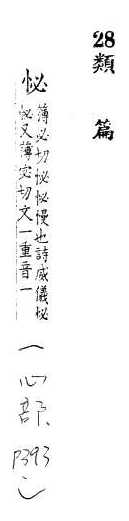 28類篇
怭薄必切怭怭慢也詩威儀怭
怭又薄宓切文一重音一
(心部、P393)